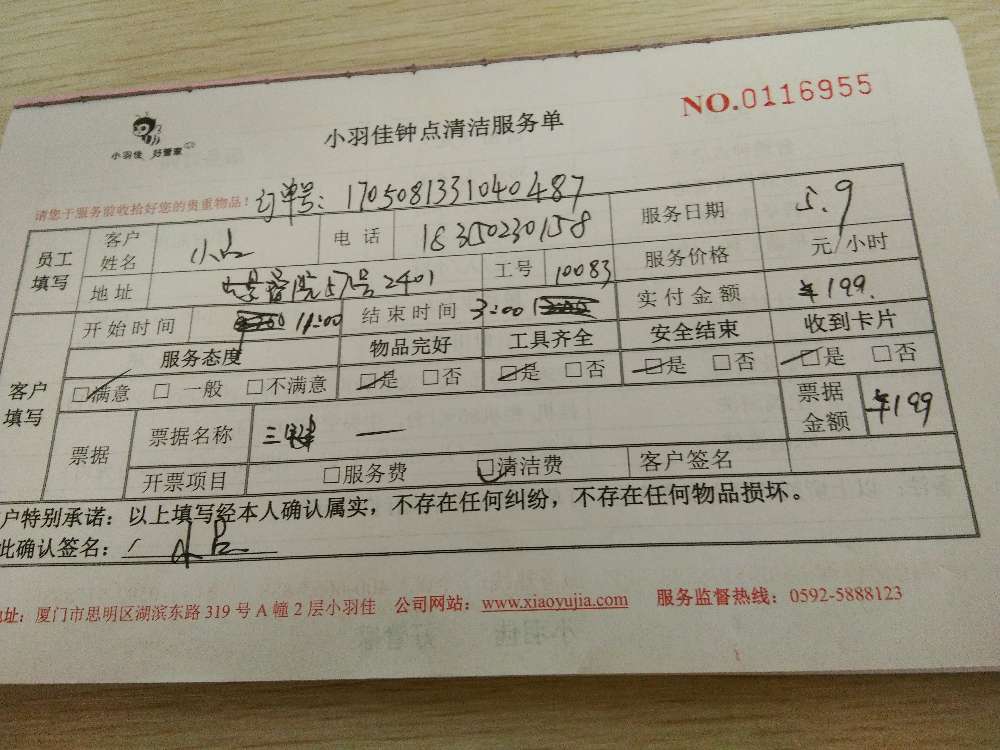 NO.0116955
小羽佳 好管家
小羽佳钟点清洁服务单
请您于服务前收拾好您的贵重物品！ 订单号：1705081331040487
员工填写 客户姓名 小 电话 18350230158 服务日期 5.9
地址 57号2401 工号 10083 服务价格 元/小时
客户填写 开始时间 11:00 结束时间 3:00 实付金额 ¥199.
服务态度 物品完好 工具齐全 安全结束 收到卡片
□满意 □一般 □不满意 □是 □否 □是 □否 □是 □否 □是 □否
票据 票据名称 三 一 票据金额 ¥199
开票项目 □服务费 □清洁费 客户签名
户特别承诺：以上填写经本人确认属实，不存在任何纠纷，不存在任何物品损坏。
此确认签名：
地址：厦门市思明区湖滨东路 319 号 A 幢 2 层小羽佳 公司网站：www.xiaoyujia.com 服务监督热线：0592-5888123